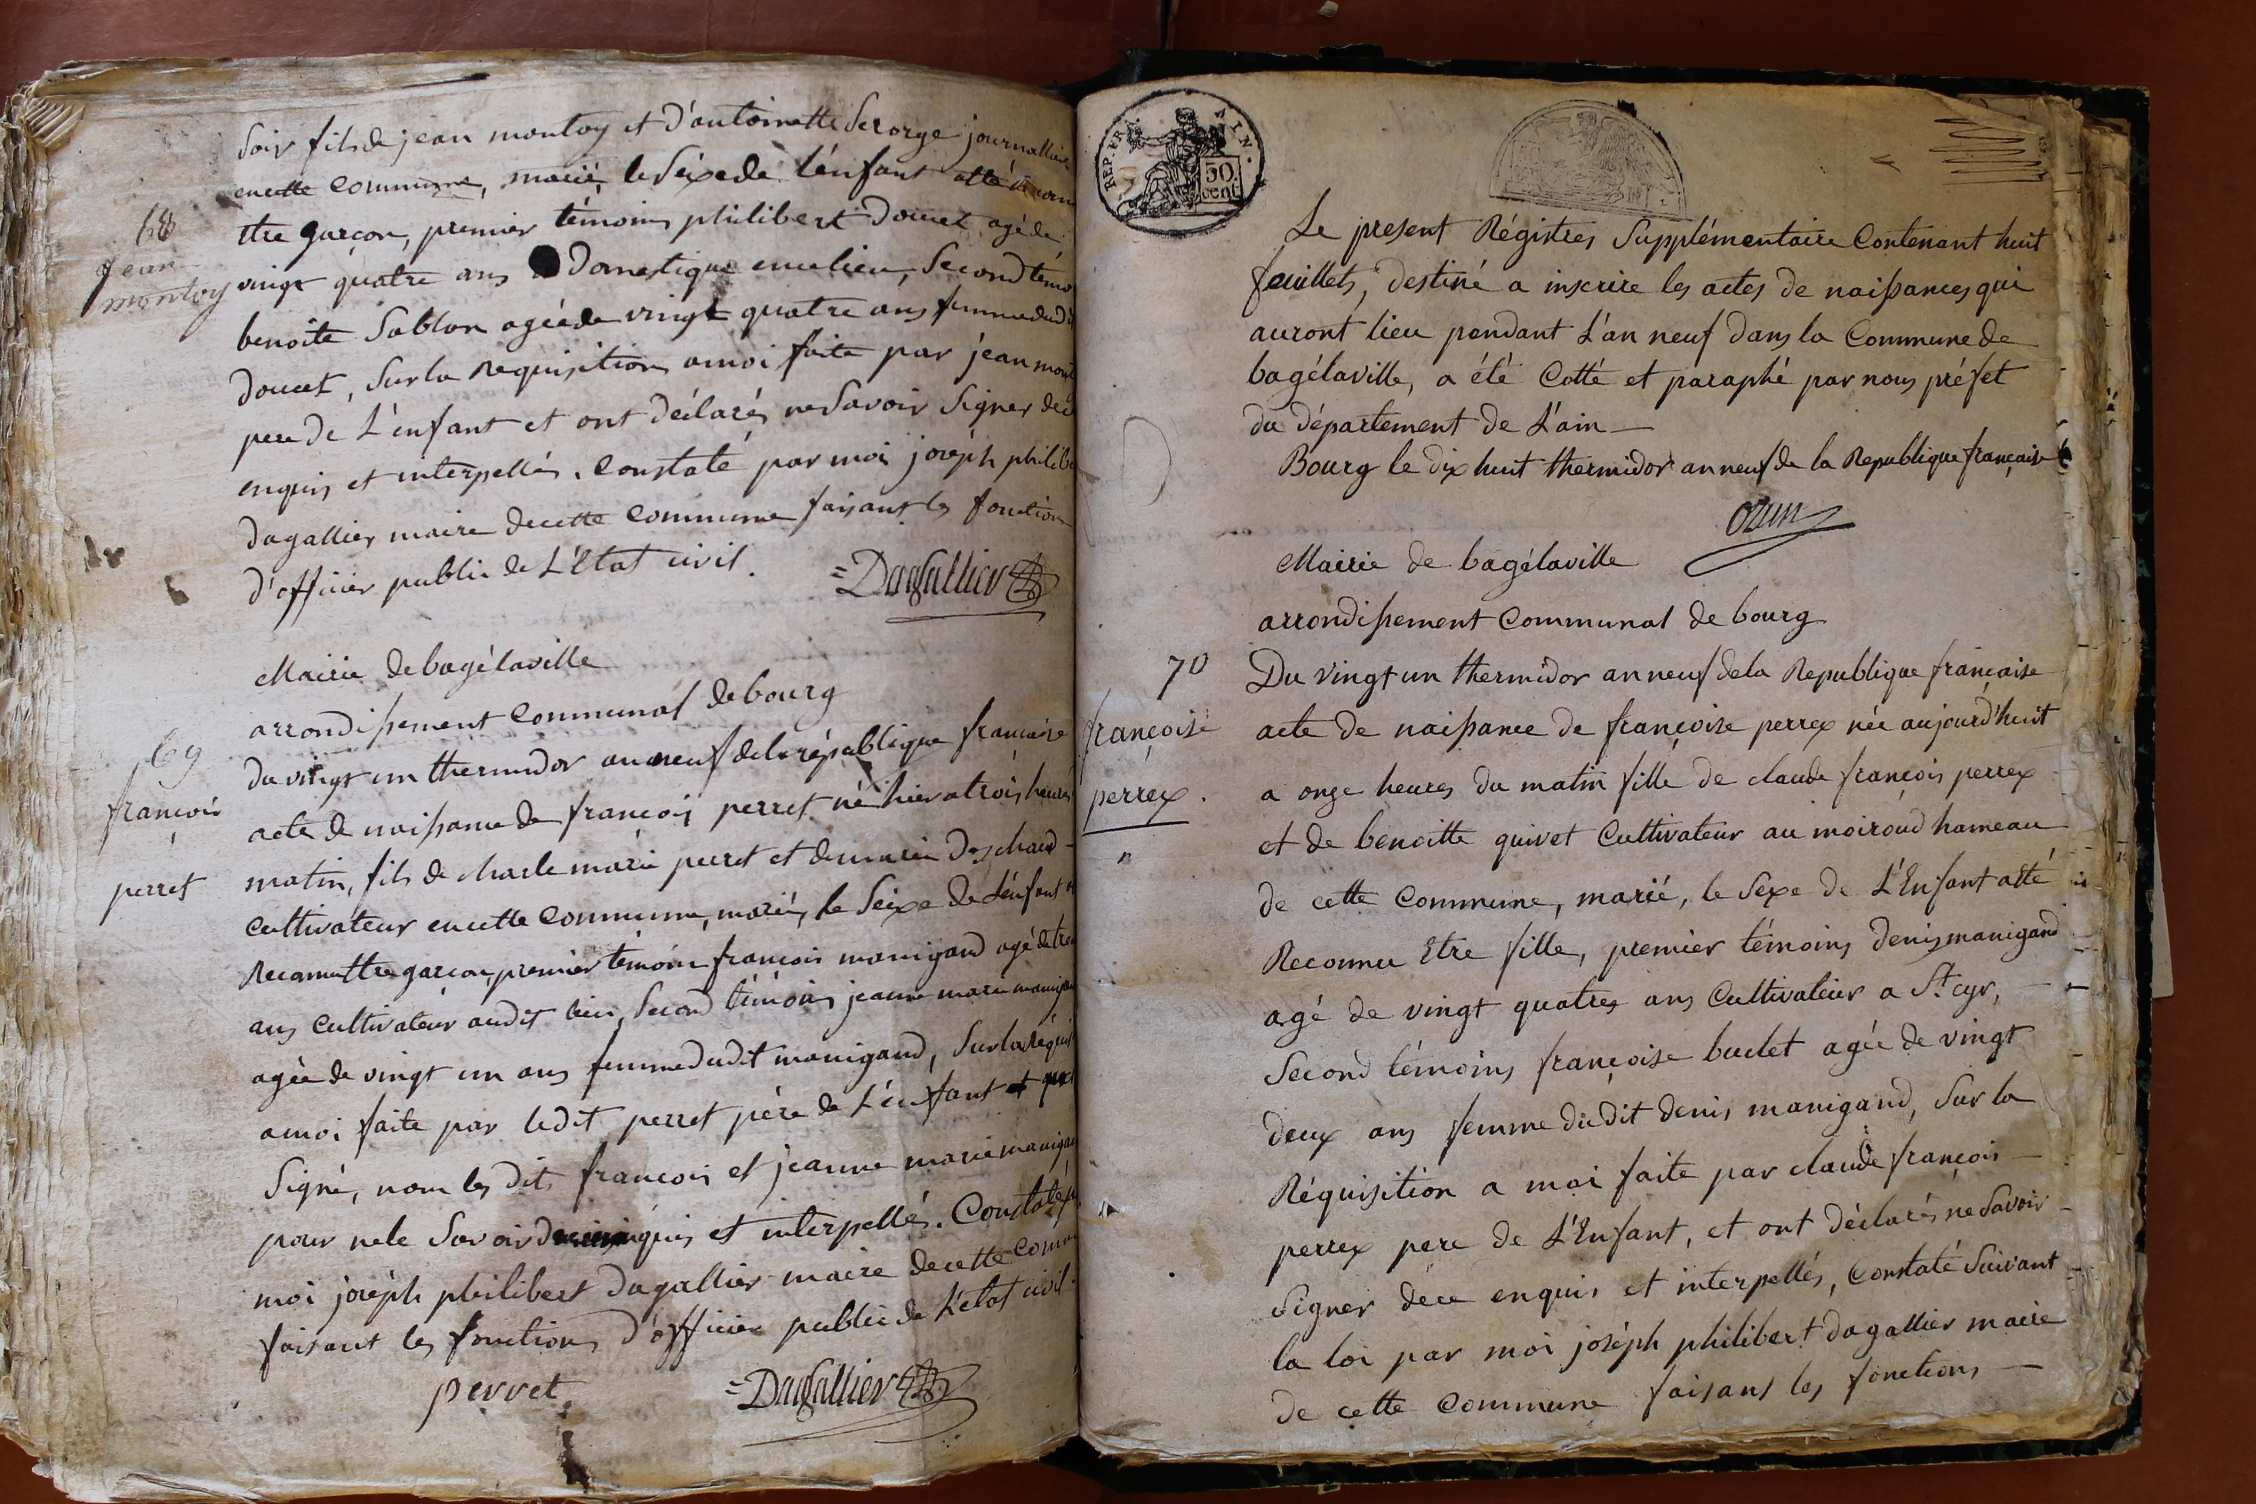 Soir fils de jean montoy et d'antoinette Serorge journallier
en cette commune, marié, le Séxe de l'énfant atté
68
Jean
montoy
tre garçon, premier témoins philibert doucet agé de
vingt quatre ans domestique en ce lieu, Second témo
benoite Sablon agée de vingt quatre ans femme dudi
doucet, Sur la Requisition amoi faite par jean mont
pere de L'énfant et ont déclarés ne Savoir Signer de ce
enquis et interpellés. Constaté par moi joséph philibe
dagallier maire de cette commune faisant les fonction
d'officier public de L'état civil.
=Dagallier
Mairie de bagélaville
arrondissement communal de bourg
69
françois
perret
du vingt un thermidor an neuf de la république francaise
acte de naissance de françois perret né hier a trois heures
matin, fils de charle marie perret et de marie Deschard
Cultivateur en cette commune, marié, le Seixe de L'énfant
garçon, premier témoin françois manigand agé de tre
ans Cultivateur audit lieu, Second témoins jeanne marie manig
agée de vingt un ans femme dudit manigand, Sur la Réquis
amoi faite par ledit perret père de L'énfant et qui
Signé, non les dits francois et jeanne marie manigan
pour ne le Savoir enquis et interpellés. Constaté p
moi joséph philibert dagallier maire de cette comm
faisant les fonctions d'officier public de L'état civil
perret
=Dagallier
REP. FRA. AIN.
50.
cent
Le present Régistres Supplémentaire Contenant huit
feuillets, destiné a inscrire les actes de naissances qui
auront lieu pendant L'an neuf dans la Commune de
bagélaville, a été Cotté et paraphé par nous préfet
du département de L'ain —
Bourg le dix huit thermidor an neuf de la Republique française
Ozun
Mairie de bagélaville
arrondissement Communal de bourg
70
françoise
perrex.
Du vingt un thermidor an neuf de la Republique française
acte de naissance de françoise perrex née aujourd'huit
a onze heures du matin fille de claude françois perrex
et de benoitte quivet Cultivateur au moiroud hameau
de cette Commune, marié, le Sexe de L'Enfant atté
Reconnu Etre fille, premier témoins denis manigand
agé de vingt quatres ans Cultivateur a St. cyr, —
Second témoins françoise buclet agée de vingt
deux ans femme dudit denis manigand, Sur la
Réquisition a moi faite par claude françois —
perrex pere de L'Enfant, et ont déclarés ne Savoir
Signer de ce enquis et interpellés, Constaté Suivant
la loi par moi joséph philibert dagallier maire
de cette Commune faisans les fonctions —